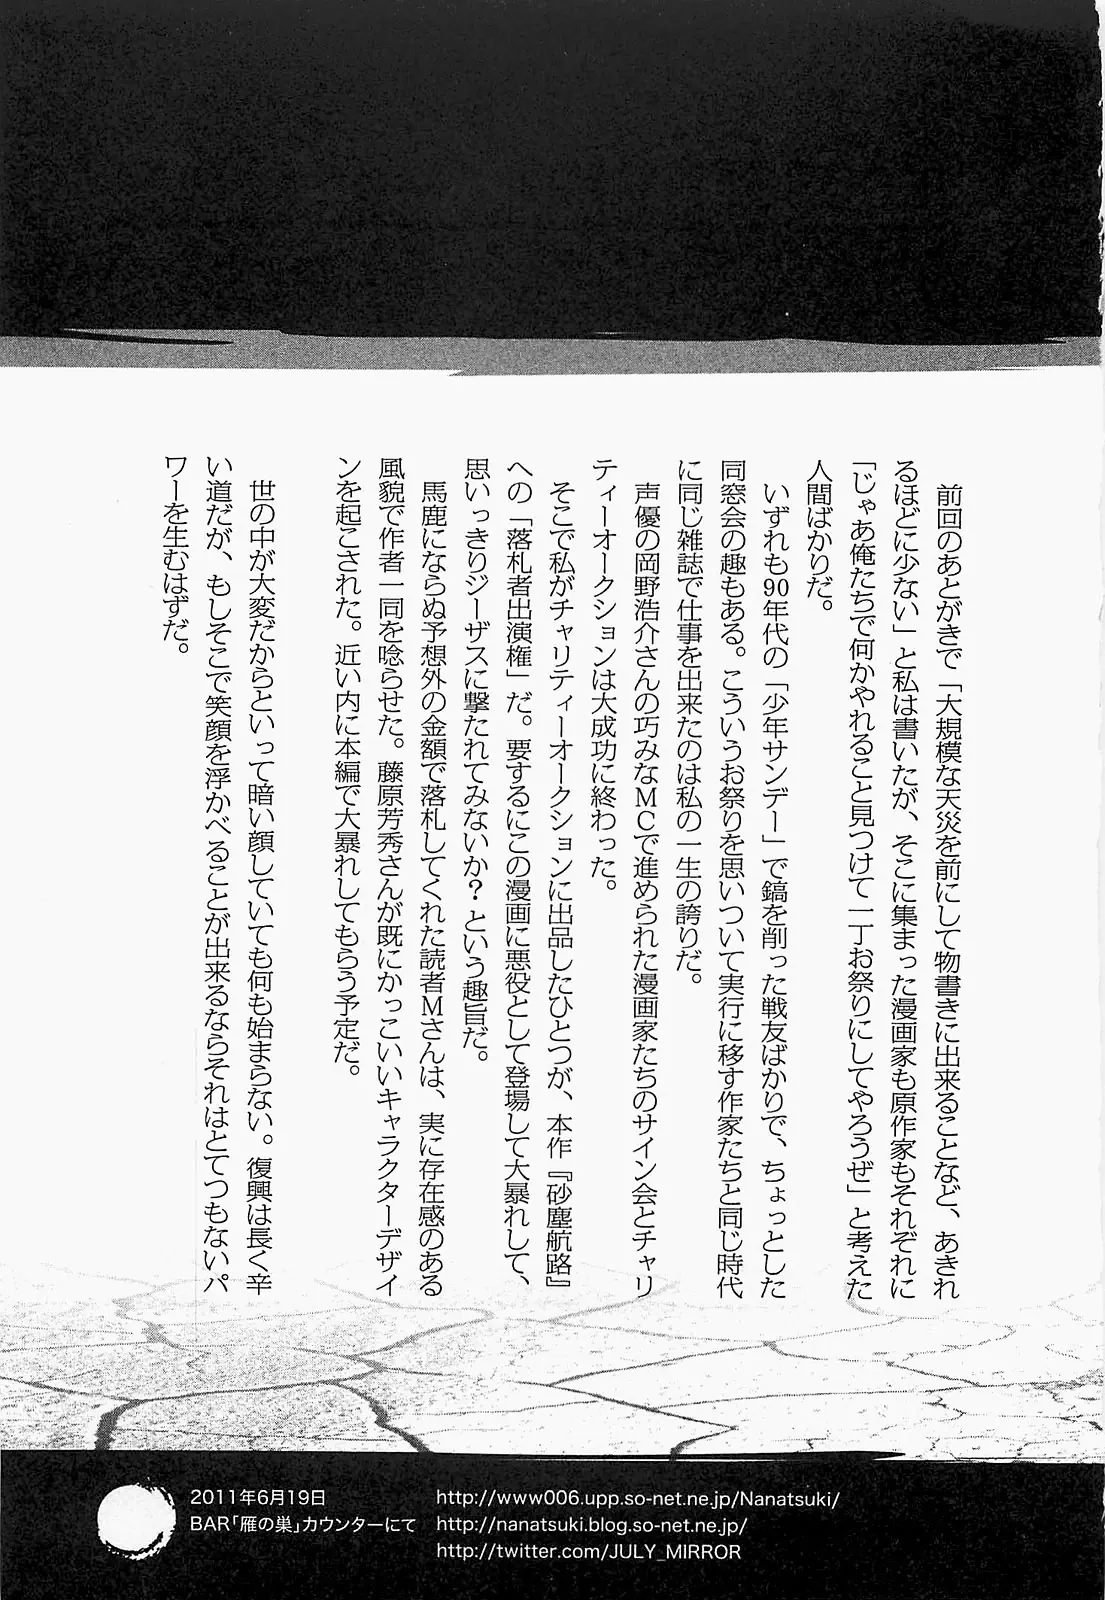 前回のあとがきで「大規模な天災を前にして物書きに出来ることなど、あきれ
るほどに少ない」と私は書いたが、そこに集まった漫画家も原作家もそれぞれに
「じゃあ俺たちで何かやれること見つけて一丁お祭りにしてやろうぜ」と考えた
人間ばかりだ。
いずれも90年代の「少年サンデー」で鎬を削った戦友ばかりで、ちょっとした
同窓会の趣もある。こういうお祭りを思いついて実行に移す作家たちと同じ時代
に同じ雑誌で仕事を出来たのは私の一生の誇りだ。
声優の岡野浩介さんの巧みなMCで進められた漫画家たちのサイン会とチャリ
ティーオークションは大成功に終わった。
そこで私がチャリティーオークションに出品したひとつが、本作『砂塵航路』
への「落札者出演権」だ。要するにこの漫画に悪役として登場して大暴れして、
思いっきりジーザスに撃たれてみないか？という趣旨だ。
馬鹿にならぬ予想外の金額で落札してくれた読者Mさんは、実に存在感のある
風貌で作者一同を唸らせた。藤原芳秀さんが既にかっこいいキャラクターデザイ
ンを起こされた。近い内に本編で大暴れしてもらう予定だ。
世の中が大変だからといって暗い顔していても何も始まらない。復興は長く辛
い道だが、もしそこで笑顔を浮かべることが出来るならそれはとてつもないパ
ワーを生むはずだ。
2011年6月19日
BAR「雁の巣」カウンターにて
http://www006.upp.so-net.ne.jp/Nanatsuki/
http://nanatsuki.blog.so-net.ne.jp/
http://twitter.com/JULY_MIRROR